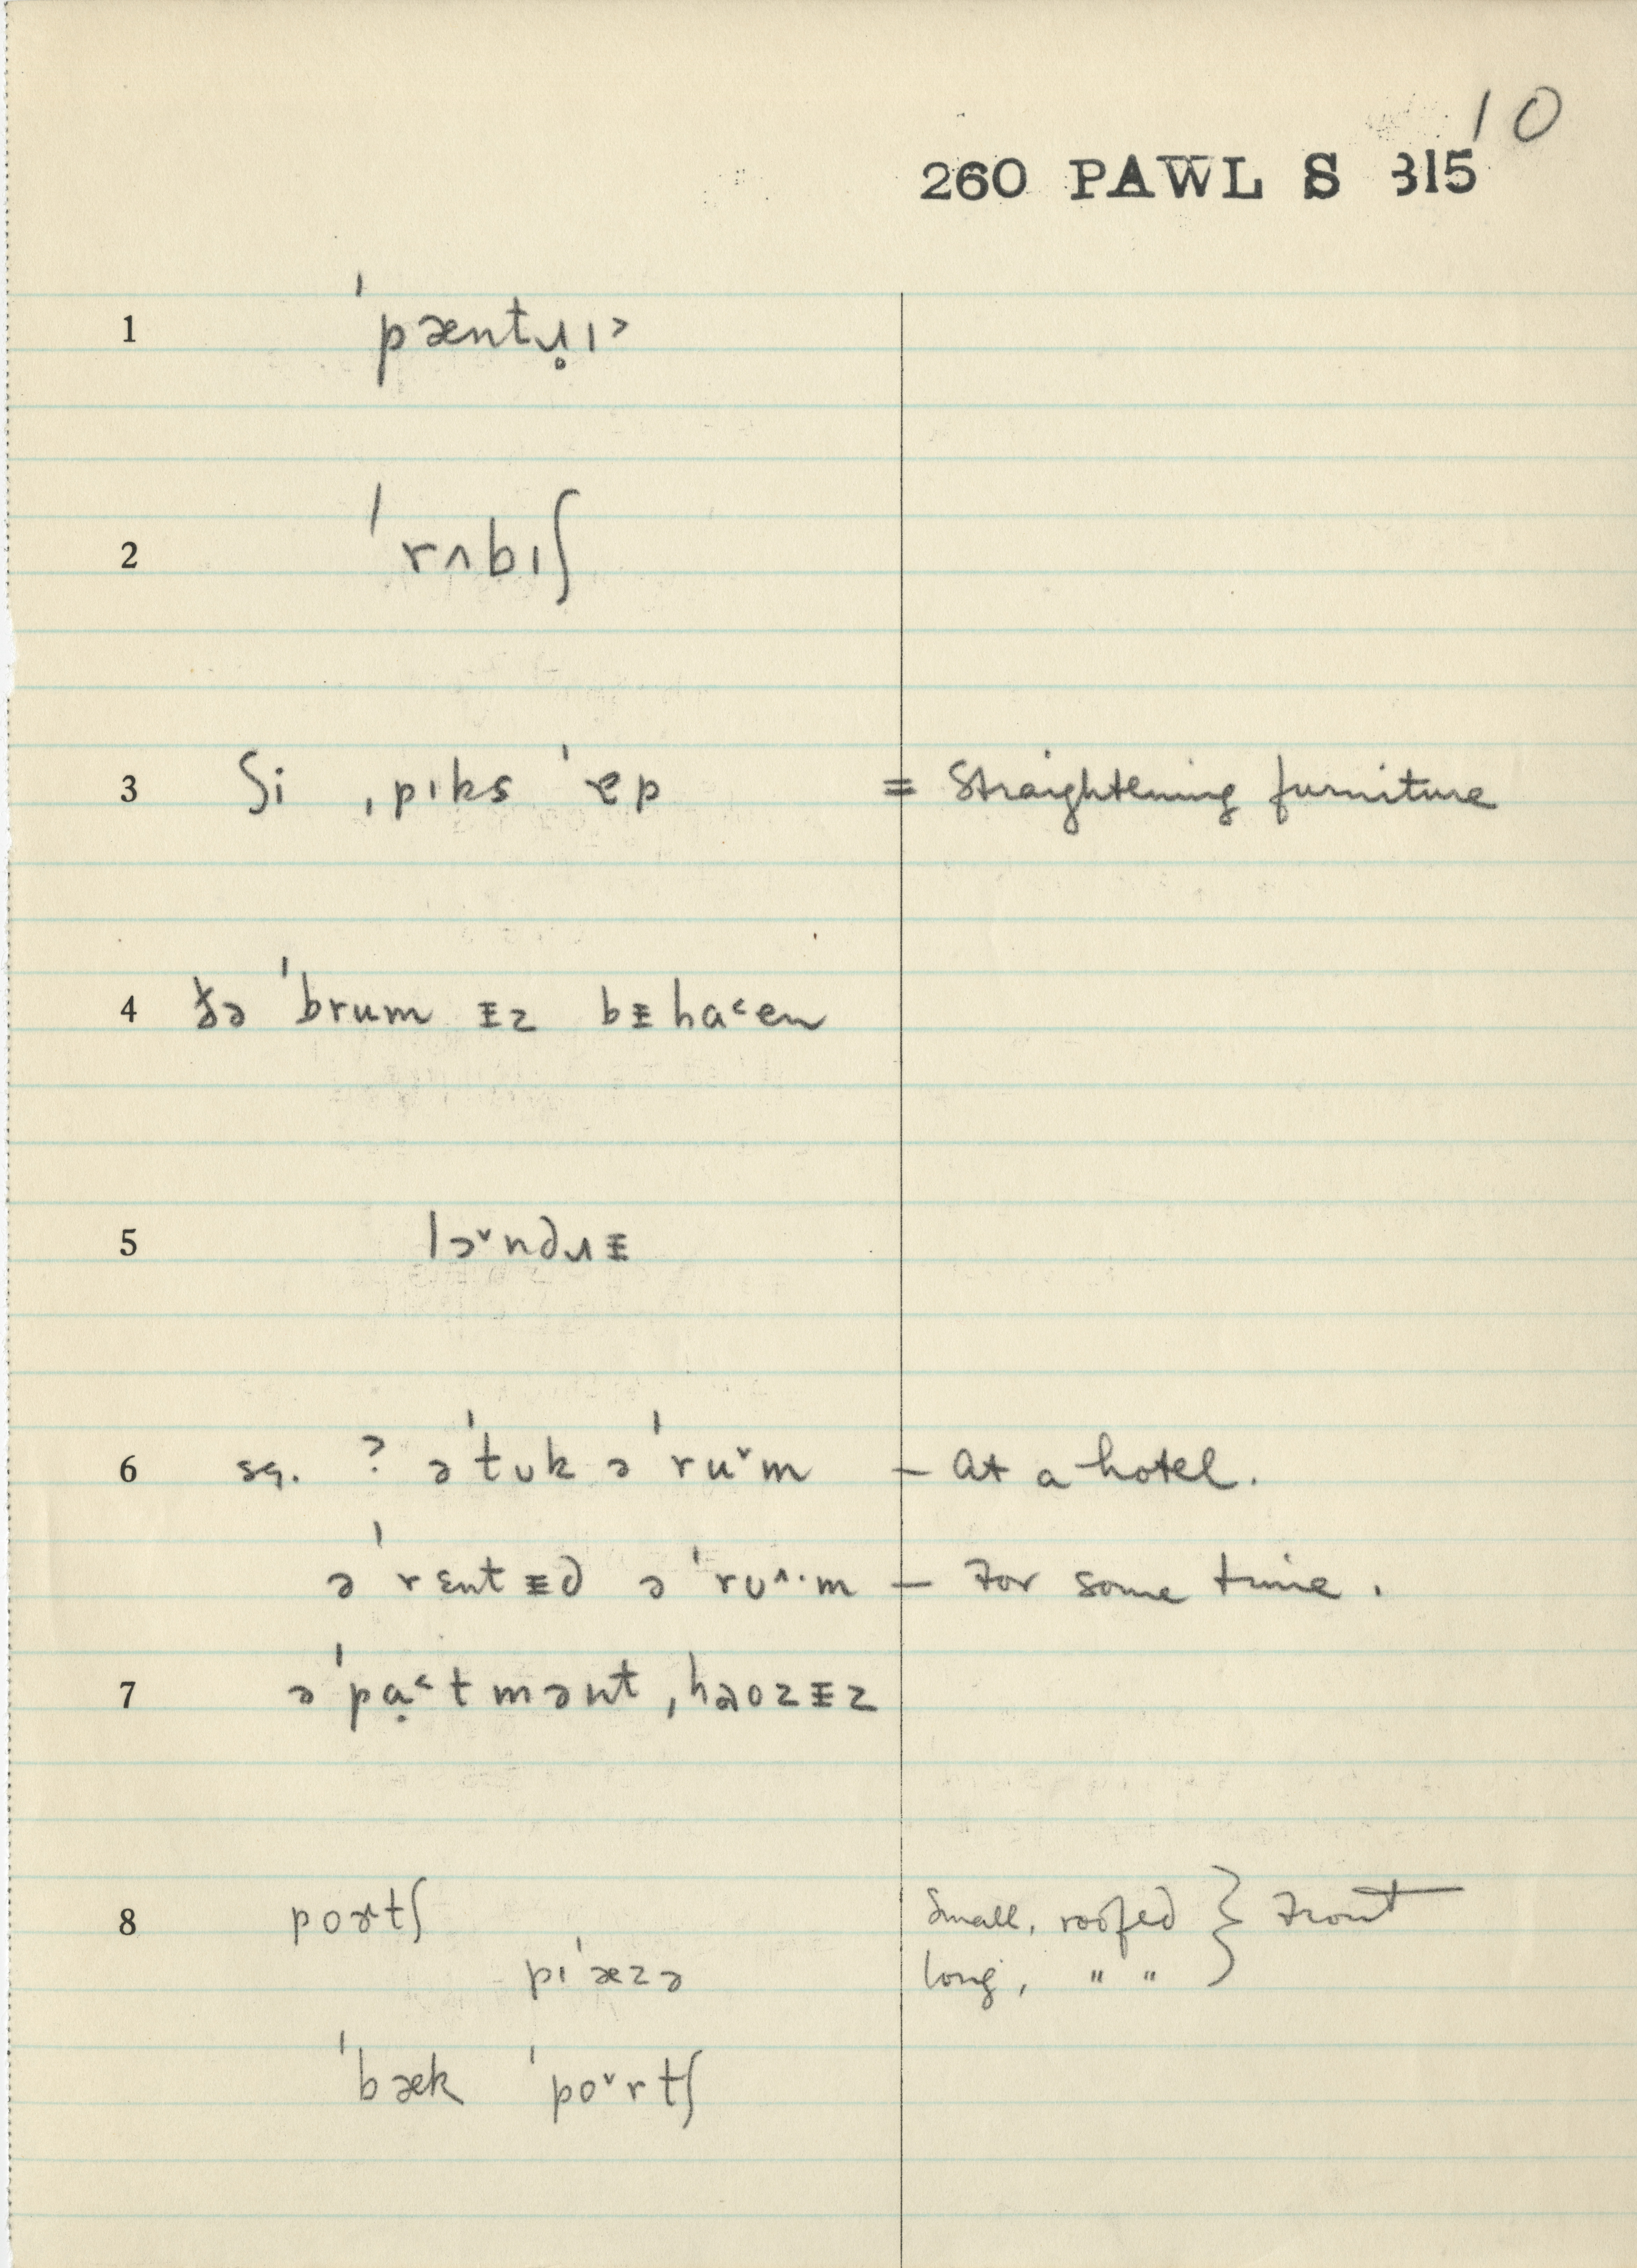 10
260 PAWL S 315
1 ˈpæntɹ̥ɪ˃
2 ˈrʌbɪʃ
3 ʃi ˌpɪks ˈɐp = Straightening furniture
4 ðə ˈbrum ᵻz bᵻha˂en
5 lɔˇndɹᵻ
6 sq. ? əˈtʊk əˈruˇm – at a hotel.
əˈrɛntᵻd əˈrʊ^·m – For some time.
7 əˈpɑ̣˂tmənt ˌhaozᵻz
8 poɚtʃ small, roofed } Front
pɪˈæzə long, " "
ˈbæk ˈpoˇrtʃ